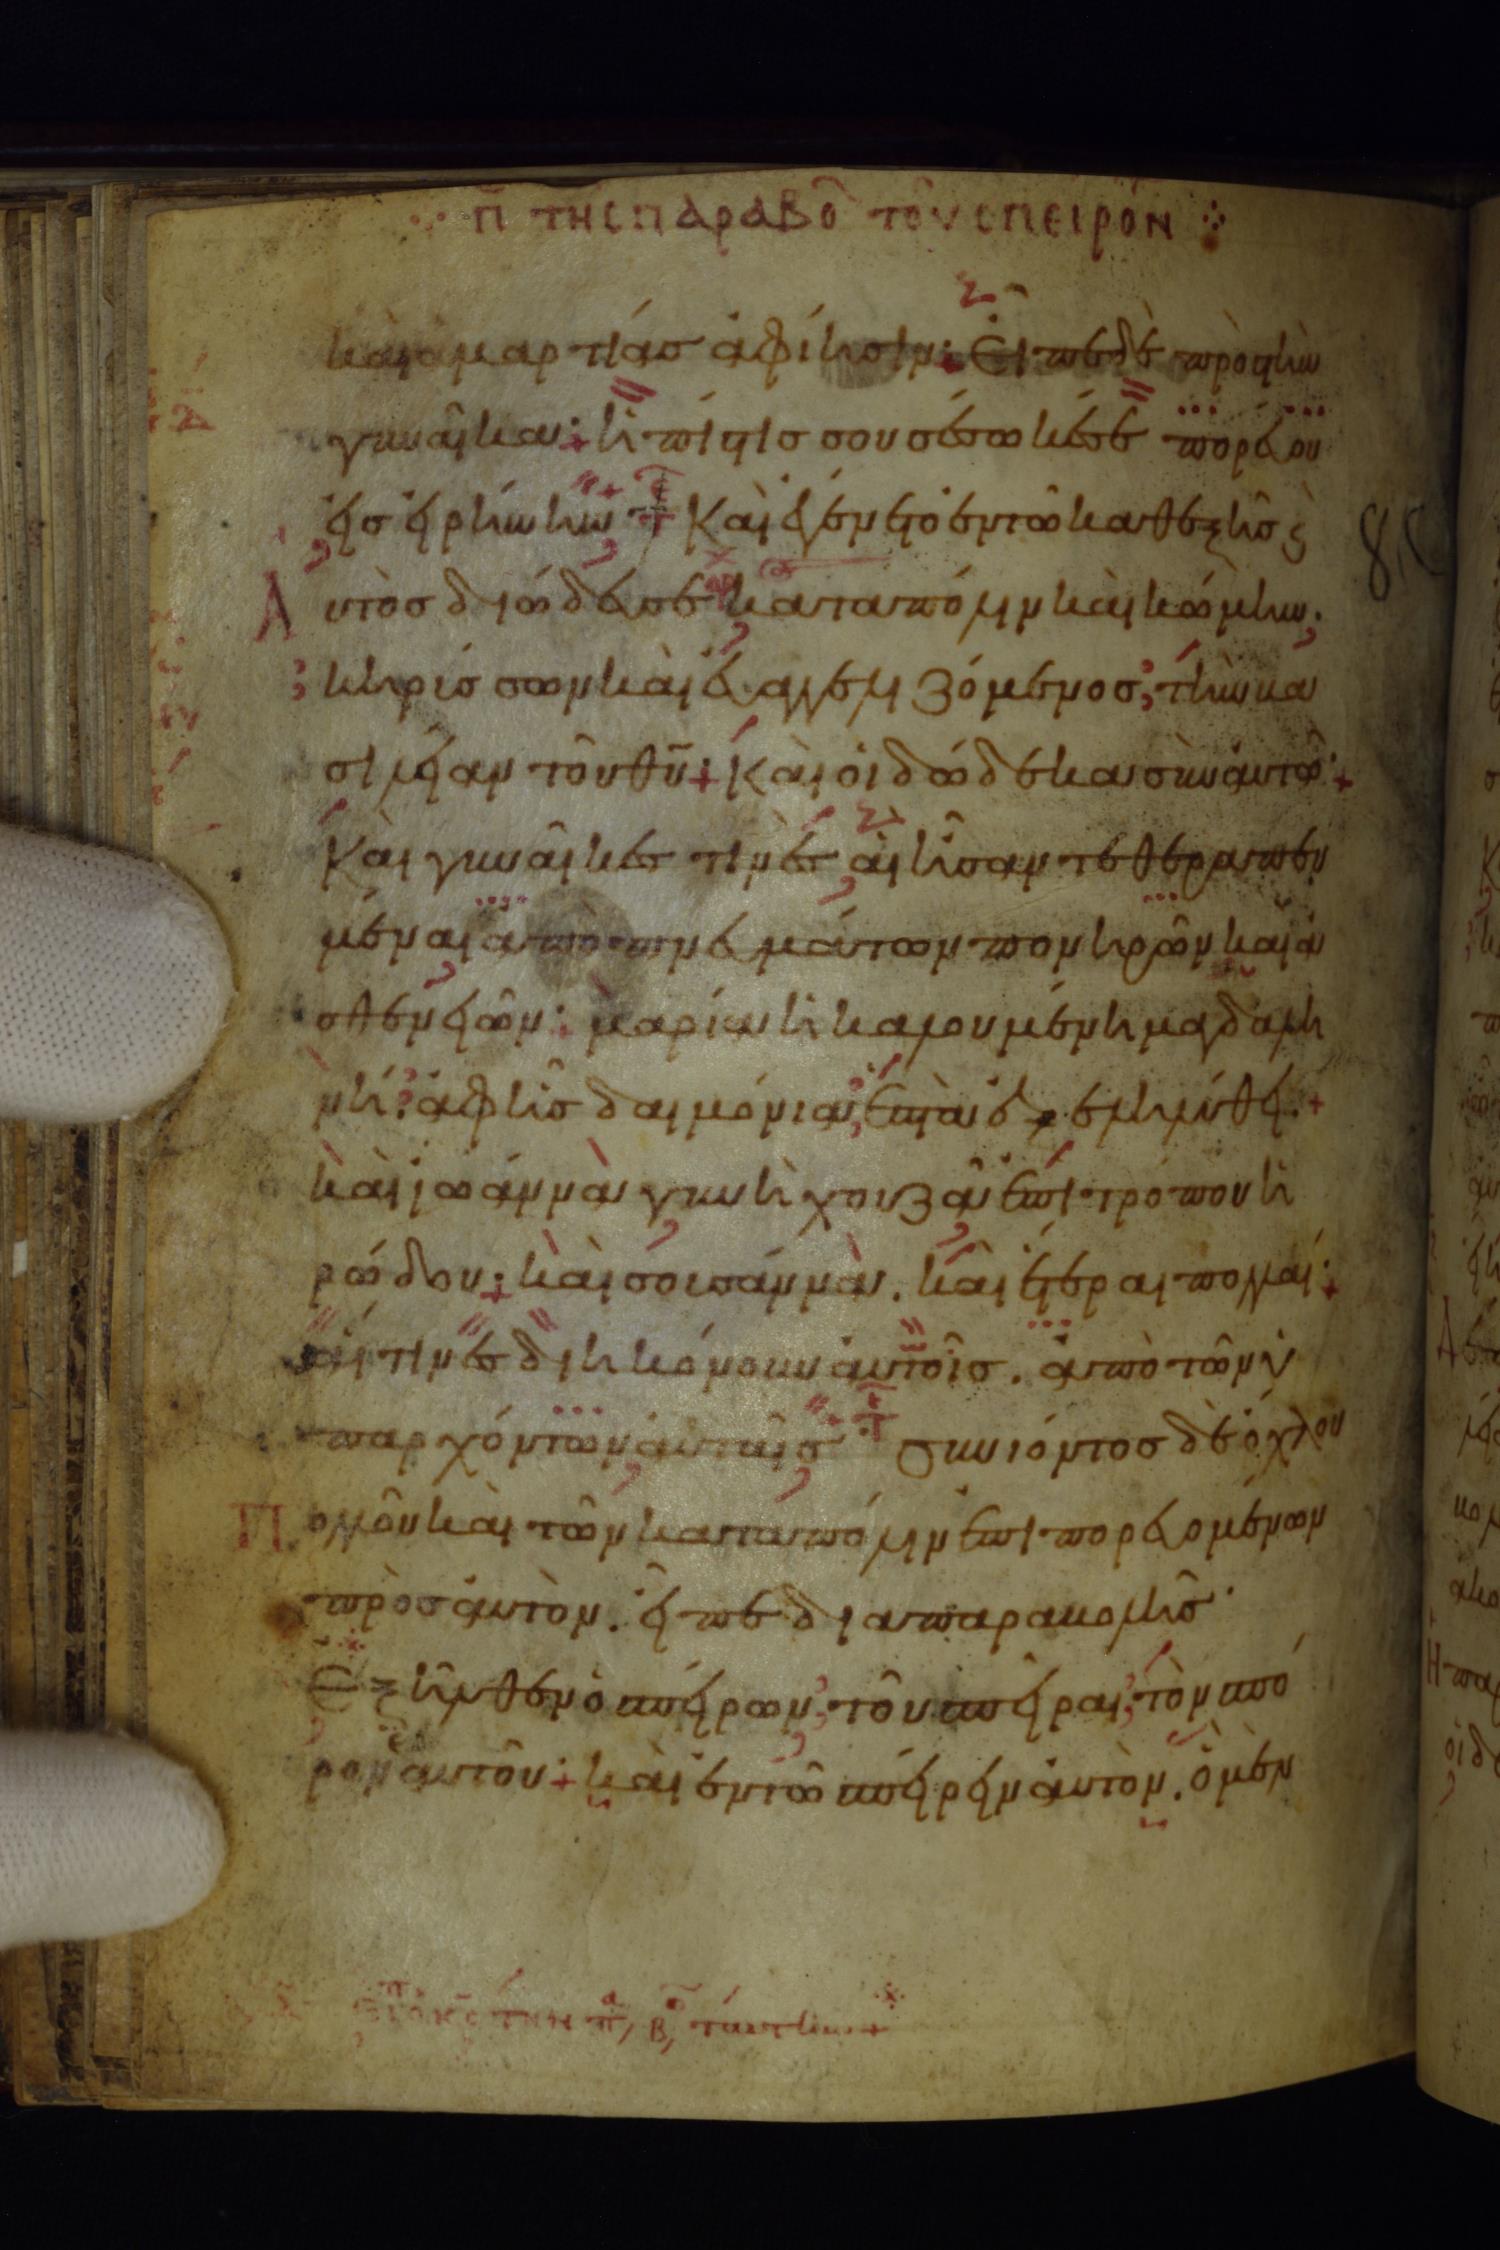 π τῆς παραβο τοῦ σπειρον
καὶ ἁμαρτίας ἀφίησιν: Εἶπε δὲ πρὸς τὴν
γυναῖκα: ἡ πίστις σου σέσωκέ σε πορεύου
εἰς εἰρήνην Καὶ ἐγένετο ἐν τῶ καθεξῆς ϛ
Αυτὸς διώδευσε κατὰ πόλιν καὶ κώμην.
κηρύσσων καὶ εὐαγγελιζόμενος τὴν βα
σιλείαν τοῦ θυ: Καὶ οἱ δώδεκα σὺν αὐτῶ:
Καὶ γυναῖκες τινὲς αἳ ἦσαν τεθεραπευ
μέναι ἀπὸ πνευμάτων πονηρῶν καὶ ἀ
σθενειῶν: μαρία ἡ καλουμένη μαγδαλη
νή: ἀφ ἧς δαιμόνια ἑπτὰ ἐξεληλύθει.
καὶ ἰωάννα γυνὴ χουζᾶ ἐπιτρόπου ἡ
ρώδου: καὶ σουσάννα. καὶ ἕτεραι πολλαί:
αἵτινες διηκόνουν αὐτοῖς. ἀπὸ τῶν ὑ
παρχόντων αὐταῖς συνιόντος δὲ ὄχλου
Πολλοῦ καὶ τῶν κατὰ πόλιν ἐπιπορευομένων
πρὸς αὐτὸν. εἶπε διὰ παραβολῆς
Εξῆλθεν ὁ σπείρων τοῦ σπεῖραι τὸν σπό
ρον αὐτοῦ: καὶ ἐν τῶ σπείρειν αὐτὸν. ὁ μὲν